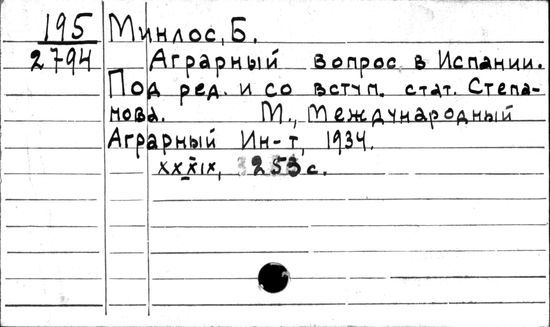 195 Минлос, Б.
2794 Аграрный вопрос в Испании.
Под ред. и со вступ. стат. Степа-
нова. М., Международный
Аграрный Ин-т, 1934.
XXXIX, 253 с.